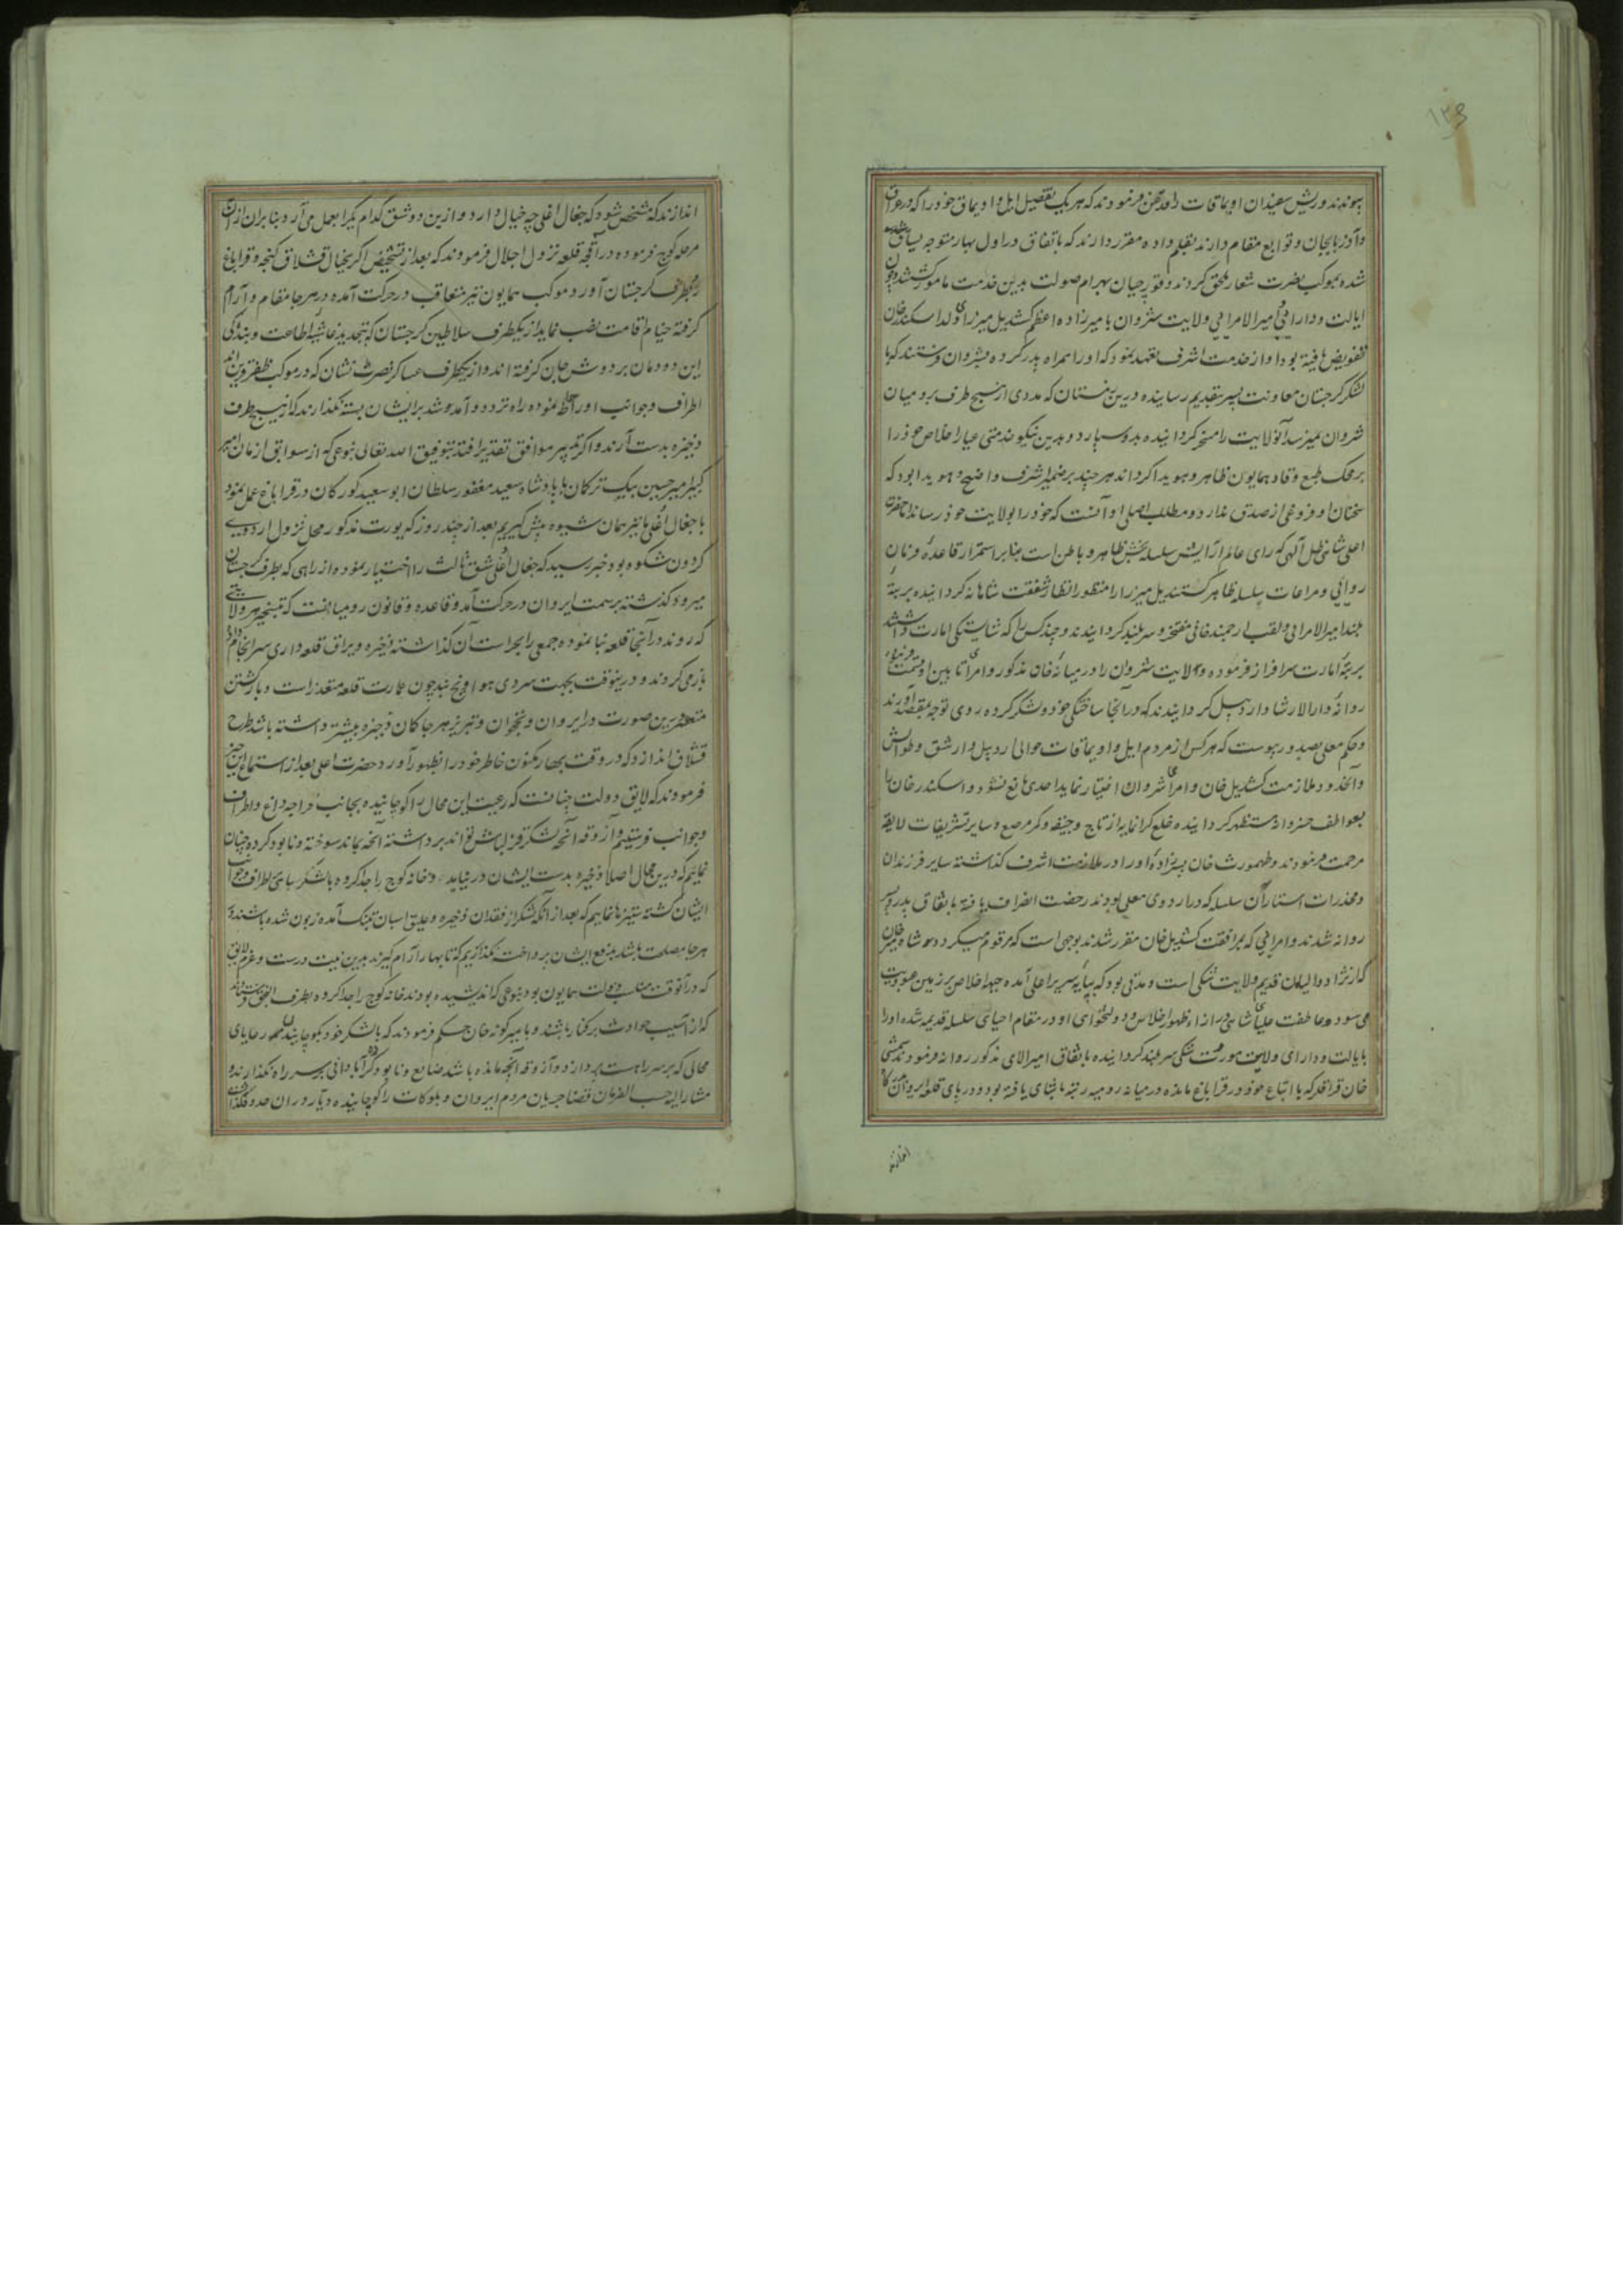 ۱۳۶
پیوندند و ریش سفیدان اویماقات را قدغن فرمودند که هر یک بتفصیل ایل و اویماق خود را که در عراق
و آذربایجان و توابع مقام دارند بقلم داده مقرر دارند که باتفاق در اول بهار متوجه یساق
شده بموکب نصرت شعار ملحق گردند و قورچیان بهرام صولت بدین خدمت مامور گشتند و چون
ایالت و دارائی و امیرالامرایی ولایت شروان با میرزاده اعظم کستندیل میرزا ولد اسکندر خان
تفویض یافته بود او از خدمت اشرف تعهد نمود که او را همراه پدر کرده بشروان فرستند که با
لشکر گرجستان معاونت پسر بتقدیم رسانیده درین زمستان که مددی از هیچ طرف بروميان
شروان نمیرسد آنولایت را مسخر گردانیده بدو سپارد و بدین نیکو خدمتی عیار اخلاص خود را
بر محک طبع وقاد همایون ظاهر و هویدا گرداند هر چند بر ضمیر اشرف واضح و هویدا بود که
سخنان او فروغی از صدق ندارد و مطلب اصلی او آنست که خود را بولایت خود رساند اما حضرت
اعلی شاهی ظل الهی که رای عالم آرایش سلسله بخش ظاهر و باطن است بنابر استمرار قاعده فرمان
روائی و مراعات سلسله ظاهر کستندیل میرزا را منظور انظار شفقت شاهانه گردانیده برتبه
بلند امیرالامرایی و لقب ارجمند خانی مفتخر و سربلند گردانیدند و چند کس را که شایستگی امارت داشتند
برتبه امارت سرافراز فرموده ولایت شروان را در میانه خان مذکور و امرای تابین او قسمت فرموده
روانه دارالارشاد اردبیل گردانیدند که در آنجا ساختگی خود و لشکر کرده روی توجه بمقصد آورند
و حکم معلی بصدور پیوست که هر کس از مردم ایل و اویماقات حوالی اردبیل و ارشق و طوالش
و آنحدود ملازمت کستندیل خان و امرای شروان اختیار نماید احدی مانع نشود و اسکندر خان را
بعواطف خسروانه مستظهر گردانیده خلع گرانمایه از تاج و جیغه و کمر مرصع و سایر تشریفات لایقه
مرحمت فرمودند و طهمورث خان پسرزاده او را در ملازمت اشرف گذاشته سایر فرزندان
و مخدرات استار آن سلسله که در اردوی معلی بودند رخصت انصراف یافته باتفاق پدر و پسر
روانه شدند و امرائی که بمرافقت کستندیل خان مقرر شدند بموجبی است که مرقوم میگردد شاه میر خان
که از نژاد والیان قدیم ولایت شکی است و مدتی بود که بپایه سریر اعلی آمده جبهه اخلاص بر زمین عبودیت
می سود و عاطفت علیای شاهی در ازاء ظهور اخلاص و دولتخواهی او در مقام احیای سلسله قدیمه شده او را
بایالت و دارای ولایت موروث شکی سربلند گردانیده باتفاق امیرالامرای مذکور روانه فرمودند شمسی
خان قزاقلر که با اتباع خود در قراباغ مانده در میانه رومیه رتبه پاشائی یافته بود و در پای قلعه ایروان
اندازند
اندازند که مشخص شود که جغال اغلی چه خیال دارد و ازین دو شق کدام یک را بعمل می آرد بنابران از آن
مرحله کوچ فرموده در آقچه قلعه نزول اجلال فرمودند که بعد از تشخیص اگر بخیال قشلاق گنجه و قراباغ
رو بطرف گرجستان آورد موکب همایون نیز متعاقب در حرکت آمده در هر جا مقام و آرام
گرفته خیام اقامت نصب نماید از یکطرف سلاطین گرجستان که بتجدید غاشیه اطاعت و بندگی
این دودمان بر دوش جان گرفته اند و از یکطرف عساکر نصرت نشان که در موکب ظفر قرین اند
اطراف و جوانب او را احاطه نموده راه تردد و آمد و شد بر ایشان بسته نگذارند که از هیچ طرف
ذخیره بدست آرند و اگر تدبیر موافق تقدیر افتد بتوفیق الله تعالی بنوعی که از سوابق ازمان امیر
کبیر امیر حسین بیک ترکمان با پادشاه سعید مغفور سلطان ابوسعید کورکان در قراباغ عمل نمود
با جغال اغلی ما نیز همان شیوه پیش گیریم بعد از چند روز که یورت مذکور محل نزول اردوی
گردون شکوه بود خبر رسید که جغال اغلی شق ثالث را اختیار نموده از راهی که بطرف گرجستان
میرود گذشته بر سمت ایروان در حرکت آمد و قاعده و قانون رومیان آنست که بتسخیر هر ولایتی
که روند در آنجا قلعه بنا نموده جمعی را بحراست آن گذاشته ذخیره و یراق قلعه داری سرانجام داده
باز می گردند و درینوقت بجهت سردی هوا و یخ بند چون عمارت قلعه متعذر است و بازگشتن
متعسر درین صورت در ایروان و نخجوان و تبریز هر جا که ان ذخیره بیشتر داشته باشد طرح
قشلاق اندازد که در وقت بهار مکنون خاطر خود را بظهور آورد حضرت اعلی بعد از استماع این خبر
فرمودند که لایق دولت چنانست که رعیت این محال را کوچانیده بجانب قراجه داغ و اطراف
و جوانب فرستیم و آزوقه آنچه لشکر قزلباش تواند برداشته آنچه بماند سوخته و نابود کرده چنان
نمائیم که درین محال اصلا ذخیره بدست ایشان در نیاید و خانه کوچ را جدا کرده با لشکر سبای اطراف و جوانب
ایشان گشته ستیزها نماییم که بعد از آنکه لشکر از فقدان ذخیره و علیق اسبان بتنگ آمده زبون شده باشند در
هر جا مصلحت باشد بدفع ایشان پرداخت نگذاریم که تا بهار آرام گیرند بدین نیت درست و عزم لایق
که در آنوقت مناسب دولت همایون بود بنوعی که اندیشیده بودند خانه کوچ را جدا کرده بطرف
که از آسیب حوادث بر کنار باشند و بامیر گونه خان حکم فرمودند که با لشکر خود بکوچانیدن رعایای
محالی که بر سر راهست پردازد و آزوقه آنچه مانده باشد ضایع و نابود کرده اثر آبادانی بر سر راه نگذارند و
مشارالیه حسب الفرمان قضا جریان مردم ایروان و بلوکات را کوچانیده دیاری در ان حدود نگذاشت